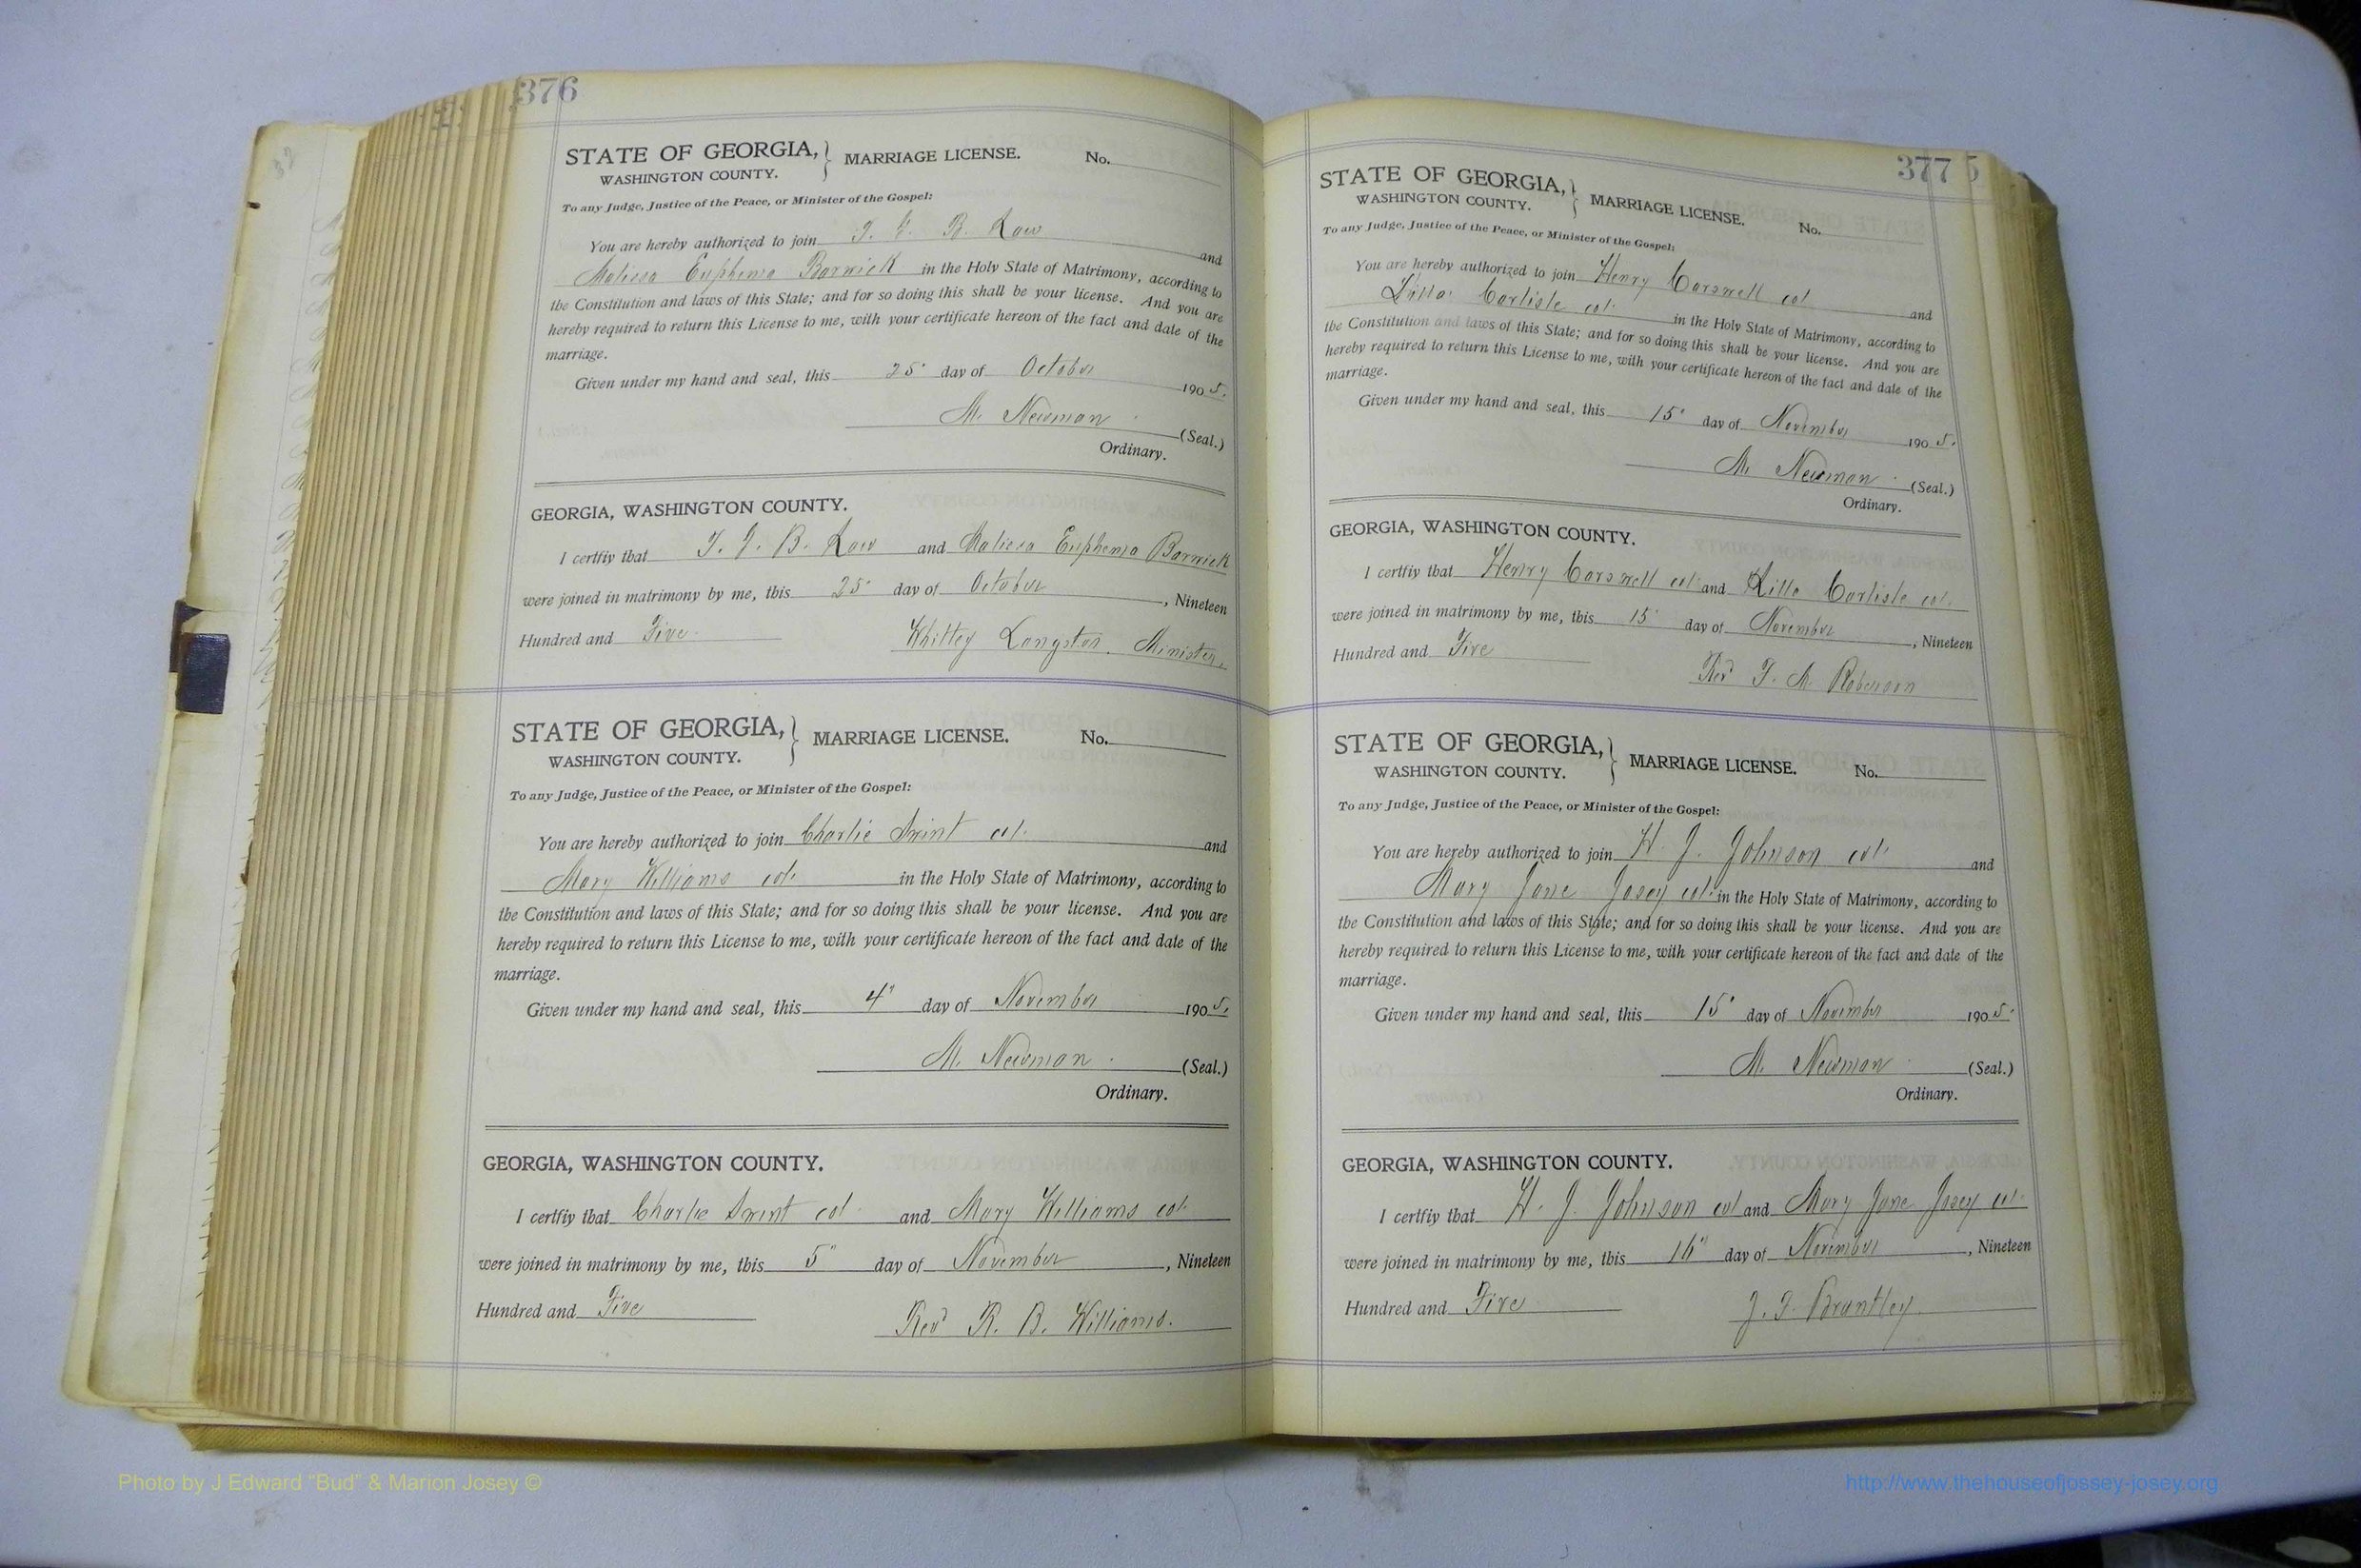 376
STATE OF GEORGIA,
WASHINGTON COUNTY.
MARRIAGE LICENSE. No.
To any Judge, Justice of the Peace, or Minister of the Gospel:
You are hereby authorized to join B. and
Malissa Euphemia Barwick in the Holy State of Matrimony, according to
the Constitution and laws of this State; and for so doing this shall be your license. And you are
hereby required to return this License to me, with your certificate hereon of the fact and date of the
marriage.
Given under my hand and seal, this 25" day of October 1905.
M. Newman (Seal.)
Ordinary.
GEORGIA, WASHINGTON COUNTY.
I certfiy that B. and Malissa Euphemia Barwick
were joined in matrimony by me, this 25" day of October, Nineteen
Hundred and Five Whitley Langston. Minister.
STATE OF GEORGIA,
WASHINGTON COUNTY.
MARRIAGE LICENSE. No.
To any Judge, Justice of the Peace, or Minister of the Gospel:
You are hereby authorized to join Charlie Swint col. and
Mary Williams col. in the Holy State of Matrimony, according to
the Constitution and laws of this State; and for so doing this shall be your license. And you are
hereby required to return this License to me, with your certificate hereon of the fact and date of the
marriage.
Given under my hand and seal, this 4" day of November 1905.
M. Newman (Seal.)
Ordinary.
GEORGIA, WASHINGTON COUNTY.
I certfiy that Charlie Swint col. and Mary Williams col.
were joined in matrimony by me, this 5" day of November, Nineteen
Hundred and Five Rev R. B. Williams.
377
STATE OF GEORGIA,
WASHINGTON COUNTY.
MARRIAGE LICENSE. No.
To any Judge, Justice of the Peace, or Minister of the Gospel:
You are hereby authorized to join Henry Carswell col and
Carlisle col. in the Holy State of Matrimony, according to
the Constitution and laws of this State; and for so doing this shall be your license. And you are
hereby required to return this License to me, with your certificate hereon of the fact and date of the
marriage.
Given under my hand and seal, this 15" day of November 1905.
M. Newman (Seal.)
Ordinary.
GEORGIA, WASHINGTON COUNTY.
I certfiy that Henry Carswell col. and Carlisle col.
were joined in matrimony by me, this 15" day of November, Nineteen
Hundred and Five Rev Roberson
STATE OF GEORGIA,
WASHINGTON COUNTY.
MARRIAGE LICENSE. No.
To any Judge, Justice of the Peace, or Minister of the Gospel:
You are hereby authorized to join H. J. Johnson col. and
Mary Jane Josey col. in the Holy State of Matrimony, according to
the Constitution and laws of this State; and for so doing this shall be your license. And you are
hereby required to return this License to me, with your certificate hereon of the fact and date of the
marriage.
Given under my hand and seal, this 15" day of November 1905.
M. Newman (Seal.)
Ordinary.
GEORGIA, WASHINGTON COUNTY.
I certfiy that H. J. Johnson col and Mary Jane Josey col.
were joined in matrimony by me, this 16" day of November, Nineteen
Hundred and Five Brantley
Photo by J Edward "Bud" & Marion Josey ©
http://www.thehouseofjossey-josey.org